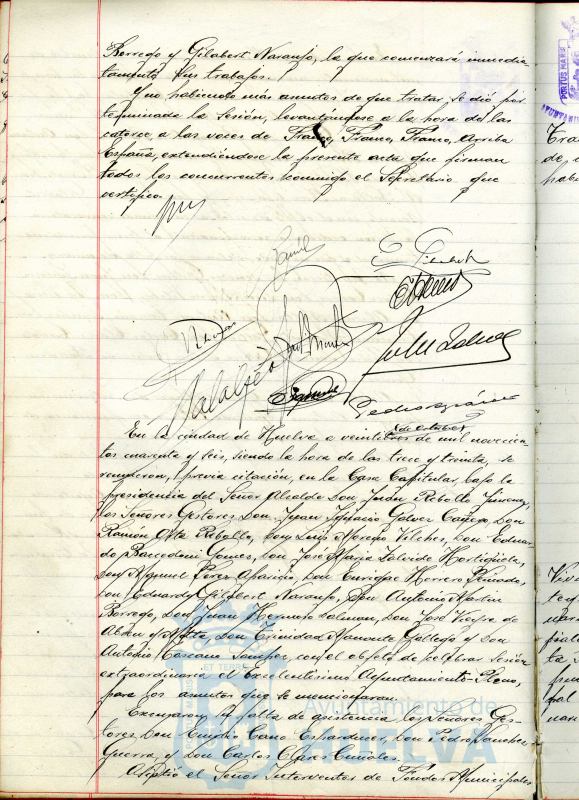 Borrego y Gilabert Naranjo, la que comenzará inmedia-
tamente sus trabajos.
Y no habiendo más asuntos de que tratar, se dió por
terminada la sesión, levantándose a la hora de las
catorce, a las voces de Franco, Franco, Franco, Arriba
España, extendiéndose la presente acta que firman
todos los concurrentes conmigo el Secretario que
certifico.
E. Gilabert
Pedro
de octubre
En la ciudad de Huelva a veintitres de mil novecien-
tos cuarenta y seis, siendo la hora de las trece y treinta, se
reunieron, previa citación, en la Casa Capitular, bajo la
presidencia del Señor Alcalde Don Juan Rebollo Jimenez,
los Señores Gestores Don Juan Ignacio Galvez Cañero, Don
Ramón Rebollo, Don Luis Moreno Vilches, Don Eduar-
do Gomez, Don José Maria Salvide Hortigüela,
Don Manuel Perez Aparicio, Don Enrique Herrero Pinzado,
Don Eduardo Gilabert Naranjo, Don Antonio Martin
Borrego, Don Juan Hermoso Colman, Don José Vieyra de
Abreu y Motta, Don Trinidad Gallego y Don
Antonio con el objeto de celebrar sesión
extraordinaria el Excelentísimo Ayuntamiento Pleno,
para los asuntos que se mencionaran.
Excusaron su falta de asistencia los Señores Ges-
tores Don Emilio Cano Don Pedro Sanchez
Guerra, y Don Carlos
Asistió el Señor Interventor de Fondos Municipales
ET TERRE
Ayuntamiento de
HUELVA
PORTUS MARIS